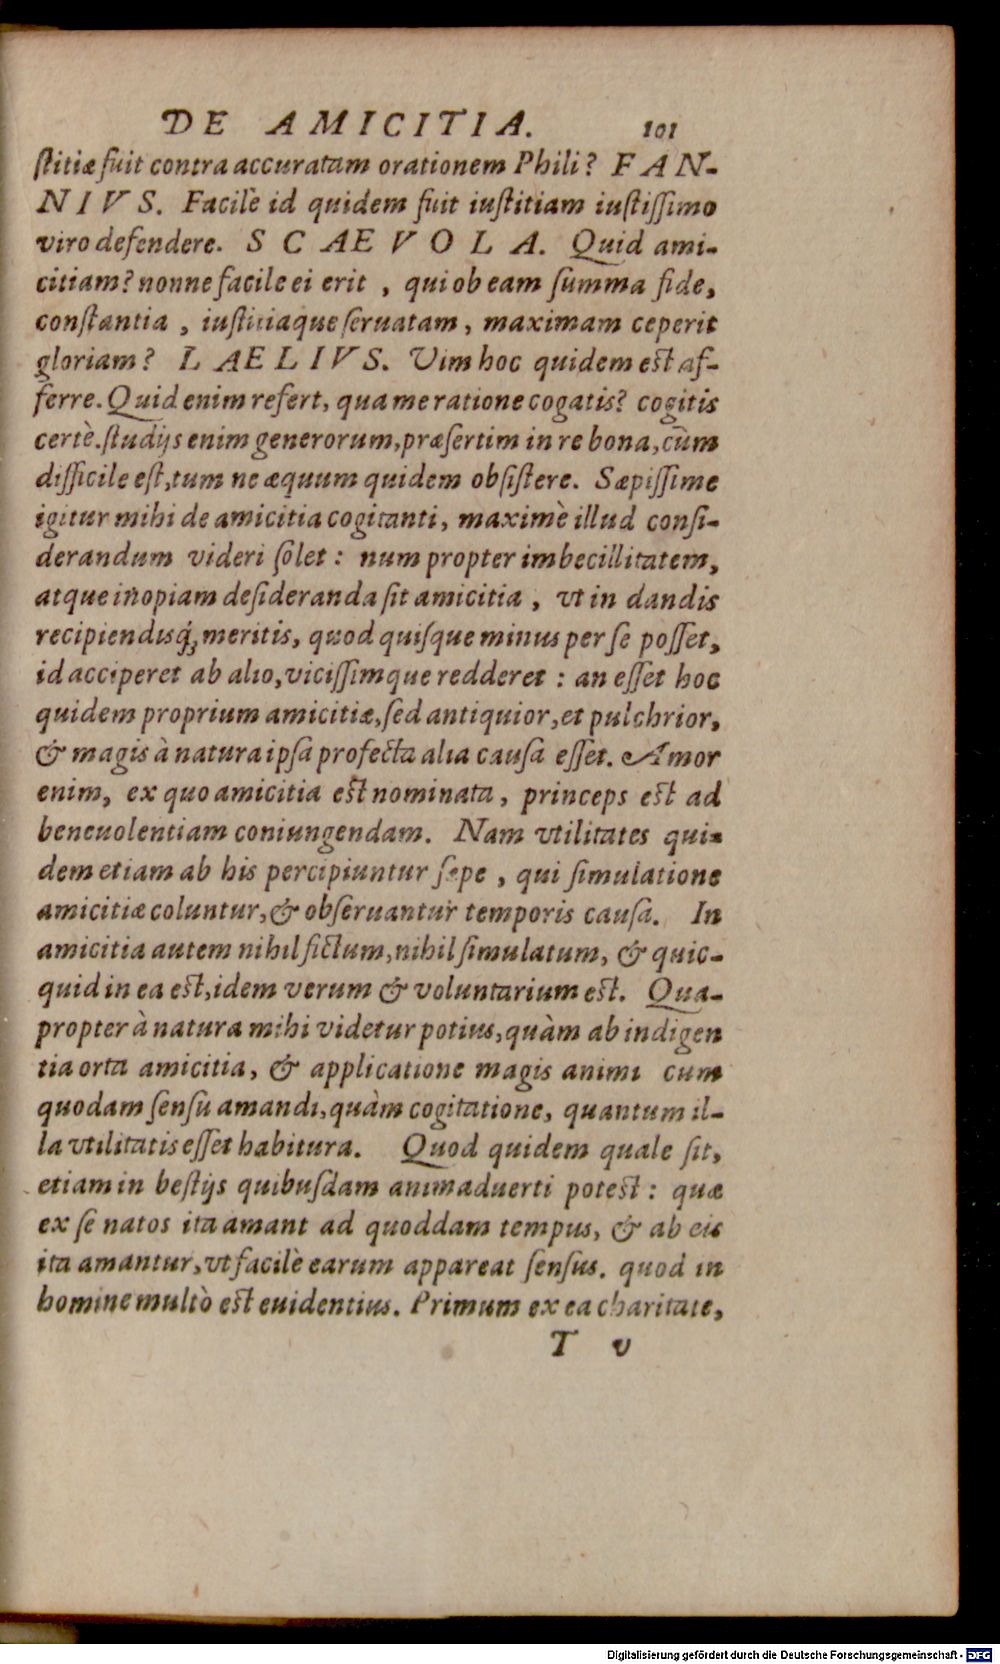 DE AMICITIA. 101
ſtitiæ fuit contra accuratam orationem Phili? FAN-
NIVS. Facilè id quidem fuit iuſtitiam iuſtiſſimo
viro defendere. SCAEVOLA. Quid ami-
citiam? nonne facile ei erit , qui ob eam ſumma fide,
conſtantia , iuſtitiaque ſeruatam, maximam ceperit
gloriam? LAELIVS. Vim hoc quidem eſt af-
ferre. Quid enim refert, qua me ratione cogatis? cogitis
certè. ſtudijs enim generorum, præſertim in re bona, cùm
difficile eſt, tum ne æquum quidem obſiſtere. Sæpiſſime
igitur mihi de amicitia cogitanti, maximè illud conſi-
derandum videri ſolet : num propter imbecillitatem,
atque inopiam deſideranda ſit amicitia , vt in dandis
recipiendisq́; meritis, quod quiſque minus per ſe poſſet,
id acciperet ab alio, viciſſimque redderet : an eſſet hoc
quidem proprium amicitiæ, ſed antiquior, et pulchrior,
& magis à natura ipſa profecta alia cauſa eſſet. Amor
enim, ex quo amicitia eſt nominata, princeps eſt ad
beneuolentiam coniungendam. Nam vtilitates qui-
dem etiam ab his percipiuntur ſæpe , qui ſimulatione
amicitiæ coluntur, & obſeruantur temporis cauſa. In
amicitia autem nihil fictum, nihil ſimulatum, & quic-
quid in ea eſt, idem verum & voluntarium eſt. Qua-
propter à natura mihi videtur potius, quàm ab indigen
tia orta amicitia, & applicatione magis animi cum
quodam ſenſu amandi, quàm cogitatione, quantum il-
la vtilitatis eſſet habitura. Quod quidem quale ſit,
etiam in beſtijs quibuſdam animaduerti poteſt : quæ
ex ſe natos ita amant ad quoddam tempus, & ab eis
ita amantur, vt facilè earum appareat ſenſus. quod in
homine multò eſt euidentius. Primum ex ea charitate,
T v
Digitalisierung gefördert durch die Deutsche Forschungsgemeinschaft - DFG